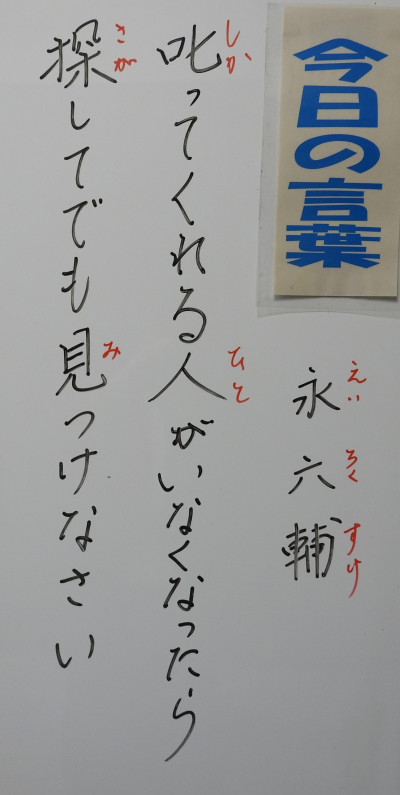 今日の言葉
永六輔
えい ろく すけ
叱ってくれる人がいなくなったら
しか ひと
探してでも見つけなさい
さが み